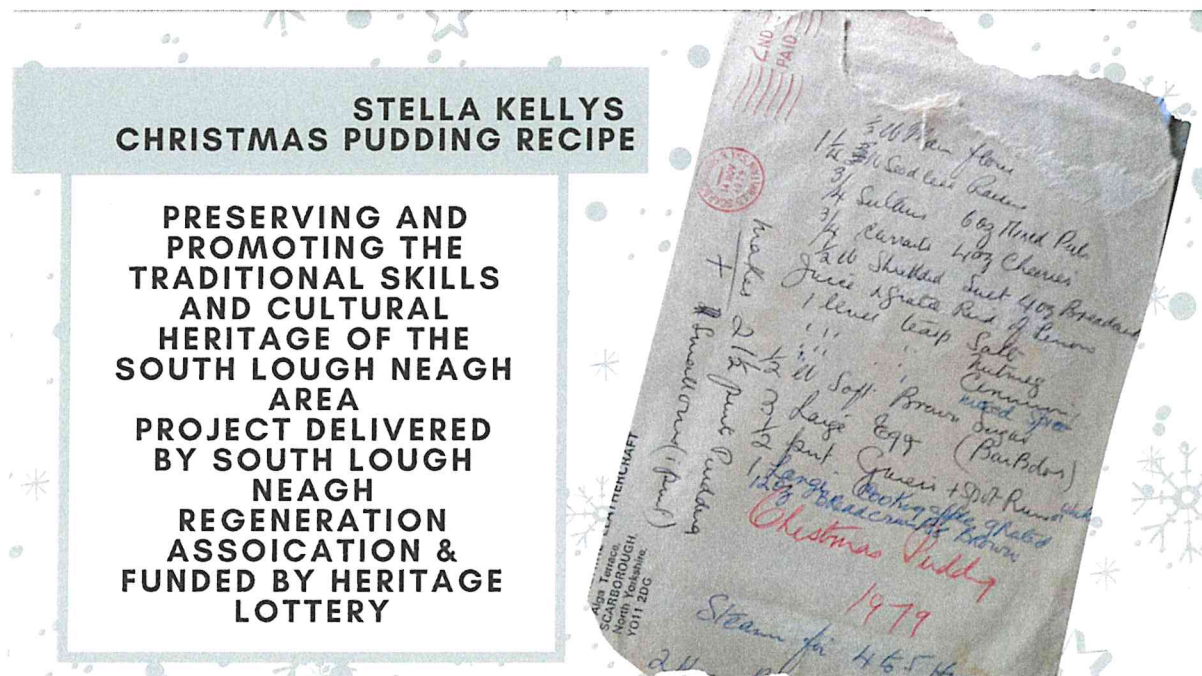 STELLA KELLYS
CHRISTMAS PUDDING RECIPE
PRESERVING AND
PROMOTING THE
TRADITIONAL SKILLS
AND CULTURAL
HERITAGE OF THE
SOUTH LOUGH NEAGH
AREA
PROJECT DELIVERED
BY SOUTH LOUGH
NEAGH
REGENERATION
ASSOICATION &
FUNDED BY HERITAGE
LOTTERY
2ND
PAID
lb Plain flour
Seedless
3/4 Sultans 6oz Mixed Peel
3/4 Currants 4oz Cherries
1/2 lb Shredded Suet 4oz
Juice & grated Rind of Lemon
1 level teasp Salt
" " " Nutmeg
" " " Cinnamon
mixed spice
1/2 lb Soft Brown Sugar
Large Egg (BarBdos)
1/2 pint Guiness + spot Rum
1 Large cooking apple grated
12oz Breadcrumbs Brown
Christmas Pudding
1979
Steam for 4 to 5
2
Makes 2 1/2 pint Pudding
+ Small one (1 pint)
LEATHERCRAFT
Alga Terrace,
SCARBOROUGH
North Yorkshire,
YO11 2DG